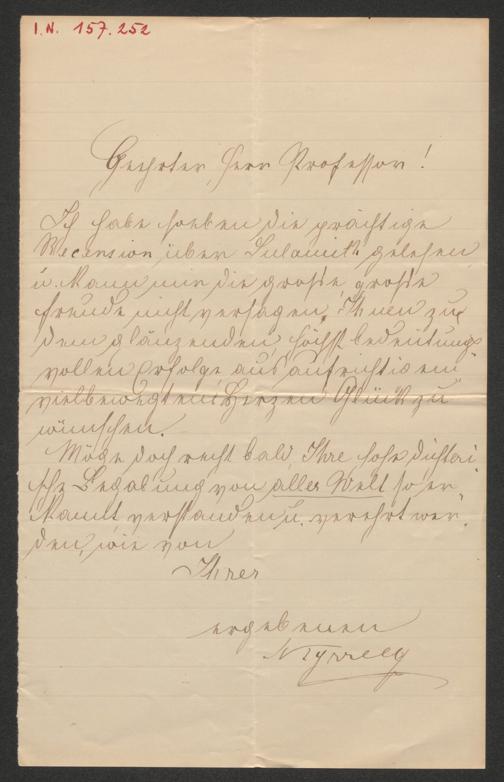 I.N. 157.252
Geehrter Herr Professor!
Ich habe soeben die prächtige
Recension über Sulamith gelesen
u. kann mir die große, große
Freude nicht versagen, Ihnen zu
dem glänzenden, höchst bedeutungs
vollen Erfolge, aus aufrichtig em
vielbewegten Herzen Glück zu
wünschen.
Möge doch recht bald, Ihre hohe dichteri
sche Begabung von aller Welt so er
kannt, verstanden u. verehrt wer
den, wie von
Ihrer
ergebenen